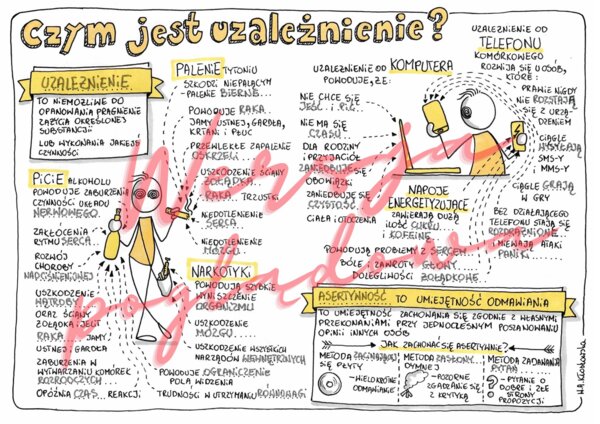 Czym jest uzależnienie?
UZALEŻNIENIE
TO NIEMOŻLIWE DO
OPANOWANIA PRAGNIENIE
ZAŻYCIA OKREŚLONEJ
SUBSTANCJI
LUB WYKONANIA JAKIEJŚ
CZYNNOŚCI
PALENIE TYTONIU
SZKODZI NIEPALĄCYM
-PALENIE BIERNE...
POWODUJE RAKA
JAMY USTNEJ, GARDŁA,
KRTANI I PŁUC
PRZEWLEKŁE ZAPALENIE
OSKRZELI
USZKODZENIE ŚCIANY
ŻOŁĄDKA
RAKA... TRZUSTKI
NIEDOTLENIENIE
SERCA
NIEDOTLENIENIE
PICIE ALKOHOLU
POWODUJE ZABURZENIA
CZYNNOŚCI UKŁADU
NERWOWEGO
ZAKŁÓCENIA
RYTMU SERCA
ROZWÓJ
CHOROBY
NADCIŚNIENIOWEJ
USZKODZENIE
WĄTROBY
ORAZ ŚCIANY
ŻOŁĄDKA I JELIT
RAKA... JAMY
USTNEJ I GARDŁA
ZABURZENIA W
WYTWARZANIU KOMÓREK
ROZRODCZYCH
OPÓŹNIA CZAS... REAKCJI
NARKOTYKI
POWODUJĄ SZYBKIE
WYNISZCZENIE
ORGANIZMU
USZKODZENIE
MÓZGU
USZKODZENIE WSZYSTKICH
NARZĄDÓW WEWNĘTRZNYCH
POWODUJE OGRANICZENIE
POLA WIDZENIA
TRUDNOŚCI W UTRZYMANIU RÓWNOWAGI
UZALEŻNIENIE OD KOMPUTERA
POWODUJE, ŻE:
NIE CHCE SIĘ
JEŚĆ I PIĆ
NIE MA SIĘ
CZASU
DLA RODZINY
I PRZYJACIÓŁ
ZANIEDBUJE SIĘ
OBOWIĄZKI
ZANIEDBUJE SIĘ
CZYSTOŚĆ
CIAŁA I OTOCZENIA
UZALEŻNIENIE OD
TELEFONU
KOMÓRKOWEGO
ROZWIJA SIĘ U OSÓB,
KTÓRE:
PRAWIE NIGDY
NIE ROZSTAJĄ
SIĘ Z URZĄ-
DZENIEM
CIĄGLE
WYSYŁAJĄ
SMS-Y
MMS-Y
CIĄGLE GRAJĄ
W GRY
BEZ DZIAŁAJĄCEGO
TELEFONU STAJĄ SIĘ
ROZDRAŻNIONE
I MIEWAJĄ ATAKI
PANIKI
NAPOJE
ENERGETYZUJĄCE
ZAWIERAJĄ DUŻĄ
ILOŚĆ CUKRU
KOFEINĘ
POWODUJĄ PROBLEMY Z SERCEM
BÓLE I ZAWROTY GŁOWY
DOLEGLIWOŚCI ŻOŁĄDKOWE
ASERTYWNOŚĆ TO UMIEJĘTNOŚĆ ODMAWIANIA
TO UMIEJĘTNOŚĆ ZACHOWANIA SIĘ ZGODNIE Z WŁASNYMI
PRZEKONANIAMI PRZY JEDNOCZESNYM POSZANOWANIU
OPINII INNYCH OSÓB
JAK ZACHOWAĆ SIĘ ASERTYWNIE?
METODA ZACINAJĄCEJ
SIĘ PŁYTY
-WIELOKROTNE
ODMAWIANIE
METODA ZASŁONY
DYMNEJ
-POZORNE
ZGADZANIE SIĘ
Z KRYTYKĄ
METODA ZADAWANIA
PYTAŃ
- PYTANIE O
DOBRE I ZŁE
STRONY
PROPOZYCJI
Wersja
poglądowa